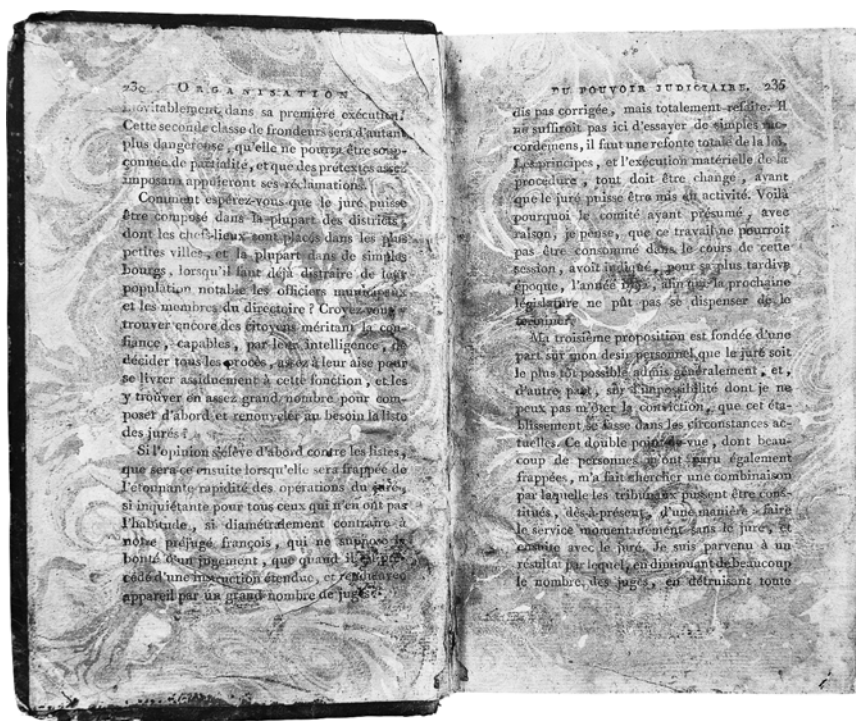 230 ORGANISATION
inévitablement dans sa première exécution.
Cette seconde classe de frondeurs sera d'autant
plus dangereuse, qu'elle ne pourra être soup-
çonnée de partialité, et que des prétextes assez
imposans appuieront ses réclamations.
Comment espérez-vous que le juré puisse
être composé dans la plupart des districts,
dont les chefs-lieux sont placés dans les plus
petites villes, et la plupart dans de simples
bourgs, lorsqu'il faut déjà distraire de leur
population notable les officiers municipaux
et les membres du directoire ? Croyez-vous y
trouver encore des citoyens méritant la con-
fiance, capables, par leur intelligence, de
décider tous les procès, assez à leur aise pour
se livrer assiduement à cette fonction, et les
y trouver en assez grand nombre pour com-
poser d'abord et renouveler au besoin la liste
des jurés ?
Si l'opinion s'élève d'abord contre les listes,
que sera-ce ensuite lorsqu'elle sera frappée de
l'étonnante rapidité des opérations du juré,
si inquiétante pour tous ceux qui n'en ont pas
l'habitude, si diamétralement contraire à
notre préjugé françois, qui ne suppose la
bonté d'un jugement, que quand il est pré-
cédé d'une instruction étendue, et rendu avec
appareil par un grand nombre de juges.
DU POUVOIR JUDICIAIRE. 235
dis pas corrigée, mais totalement refaite. Il
ne suffiroit pas ici d'essayer de simples rac-
cordemens, il faut une refonte totale de la loi.
Les principes, et l'exécution matérielle de la
procédure, tout doit être changé, avant
que le juré puisse être mis en activité. Voilà
pourquoi le comité ayant présumé, avec
raison, je pense, que ce travail ne pourroit
pas être consommé dans le cours de cette
session, avoit indiqué, pour sa plus tardive
époque, l'année 1792, afin que la prochaine
législature ne pût pas se dispenser de le
terminer.
Ma troisième proposition est fondée d'une
part sur mon desir personnel que le juré soit
le plus tôt possible admis généralement, et,
d'autre part, sur l'impossibilité dont je ne
peux pas m'ôter la conviction, que cet éta-
blissement se fasse dans les circonstances ac-
tuelles. Ce double point de vue, dont beau-
coup de personnes m'ont paru également
frappées, m'a fait chercher une combinaison
par laquelle les tribunaux pussent être cons-
titués, dès-à-présent, d'une manière à faire
le service momentanément sans le juré, et
ensuite avec le juré. Je suis parvenu à un
résultat par lequel, en diminuant de beaucoup
le nombre des juges, en détruisant toute